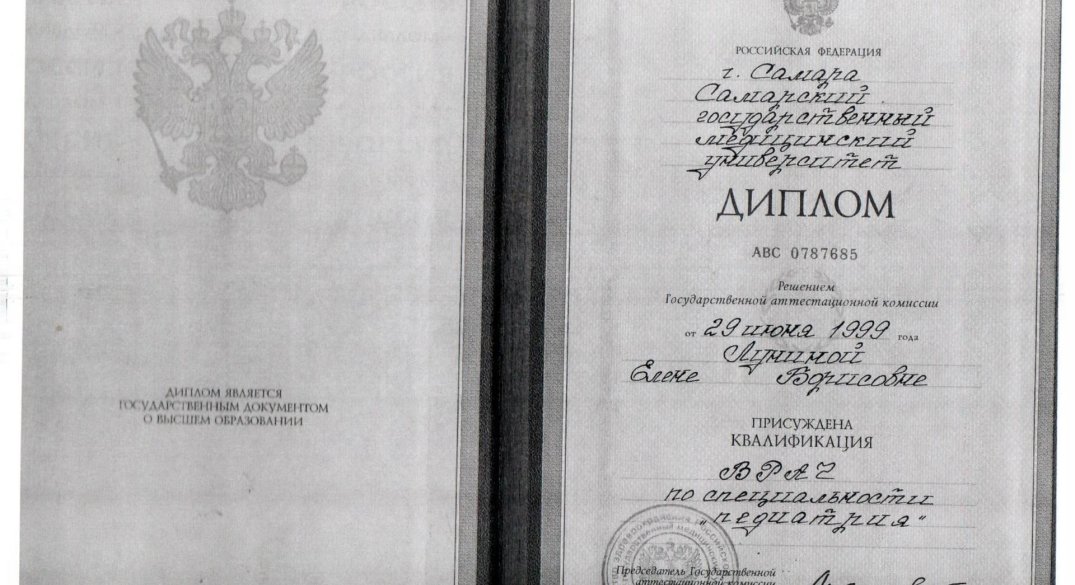 ДИПЛОМ ЯВЛЯЕТСЯ
ГОСУДАРСТВЕННЫМ ДОКУМЕНТОМ
О ВЫСШЕМ ОБРАЗОВАНИИ
РОССИЙСКАЯ ФЕДЕРАЦИЯ
г. Самара
Самарский
государственный
медицинский
университет
ДИПЛОМ
АВС 0787685
Решением
Государственной аттестационной комиссии
от 29 июня 1999 года
Луниной
Елене Борисовне
ПРИСУЖДЕНА
КВАЛИФИКАЦИЯ
ВРАЧ
по специальности
„педиатрия“
Председатель Государственной
аттестационной комиссии